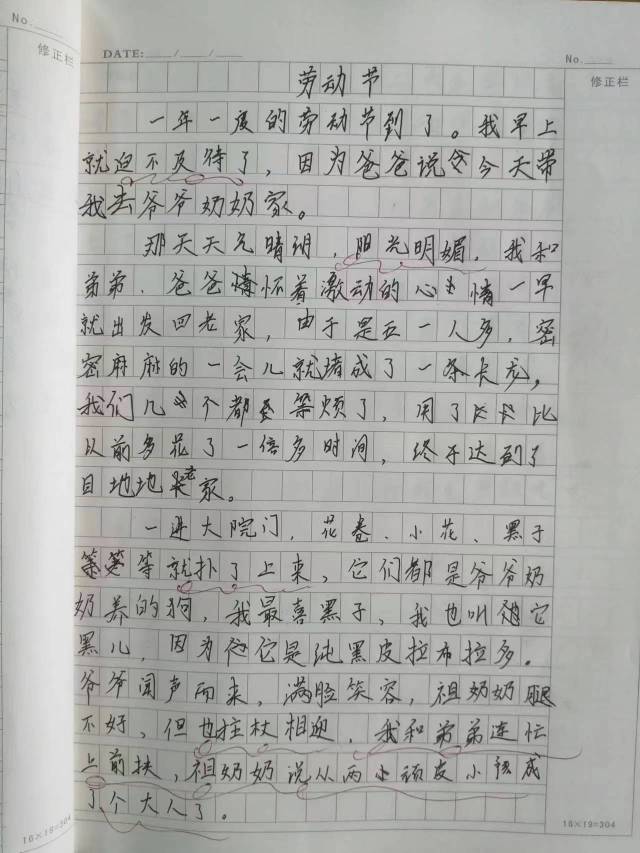 No.
修正栏
DATE: / /
No.
修正栏
劳动节
一年一度的劳动节到了。我早上
就迫不及待了，因为爸爸说今天带
我去爷爷奶奶家。
那天天气晴朗，阳光明媚，我和
弟弟、爸爸怀着激动的心情一早
就出发回老家，由于是五一人多，密
密麻麻的一会儿就堵成了一条长龙，
我们几个都等烦了，用了比
以前多花了一倍多时间，终于达到了
目地地老家。
一进大院门，花卷、小花、黑子
等就扑了上来，它们都是爷爷奶
奶养的狗，我最喜黑子，我也叫它
黑儿，因为它是纯黑皮拉布拉多。
爷爷闻声而来，满脸笑容，祖奶奶腿
不好，但也拄杖相迎，我和弟弟连忙
上前扶，祖奶奶说从两小顽皮小孩成
了个大人了。
16×19=304
16×19=304